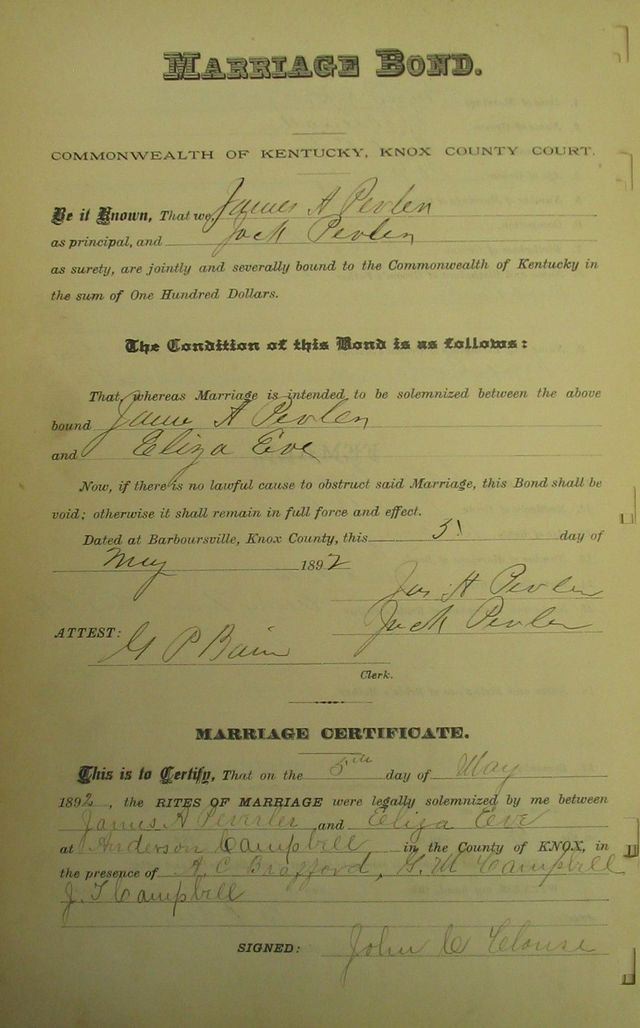 MARRIAGE BOND.
COMMONWEALTH OF KENTUCKY, KNOX COUNTY COURT.
Be it Known, That we, James A Pevlen
as principal, and Jack Pevlen
as surety, are jointly and severally bound to the Commonwealth of Kentucky in
the sum of One Hundred Dollars.
The Condition of this Bond is as follows:
That, whereas Marriage is intended to be solemnized between the above
bound Jame A Pevlen
and Eliza Eve
Now, if there is no lawful cause to obstruct said Marriage, this Bond shall be
void; otherwise it shall remain in full force and effect.
Dated at Barboursville, Knox County, this 5 day of
May 1892
Jas A Pevlen
Jack Pevlen
ATTEST: G P Bain
Clerk.
MARRIAGE CERTIFICATE.
This is to Certify, That on the 5th day of May
1892, the RITES OF MARRIAGE were legally solemnized by me between
James A Peverler and Eliza Eve
at Anderson Campbell in the County of KNOX, in
the presence of A. C. Brafford, G. M Campbell
J. T Campbell
SIGNED: John C Clouse